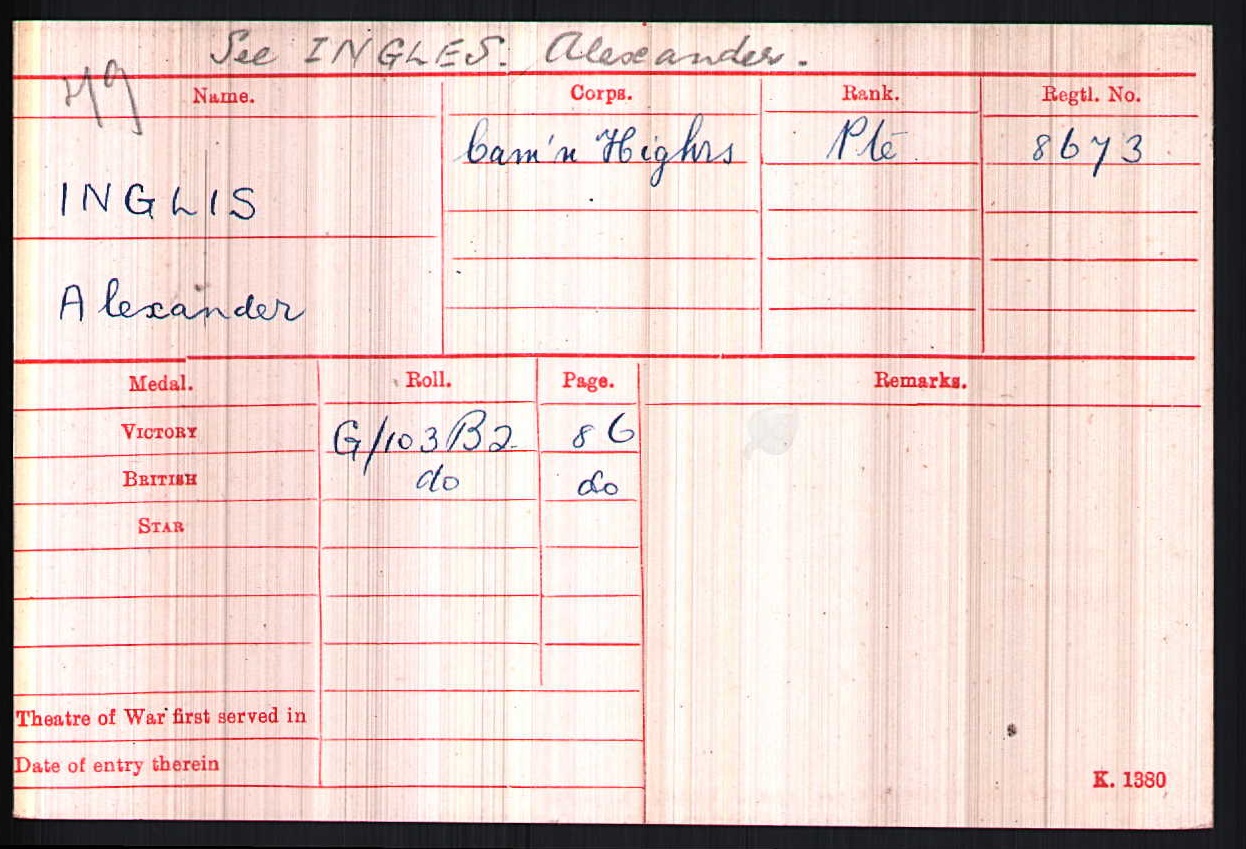 See INGLES. Alexander.
49
Name. Corps. Rank. Regtl. No.
Cam'n Highrs Pte 8673
INGLIS
Alexander
Medal. Roll. Page. Remarks.
VICTORY G/103B2 86
BRITISH do do
STAR
Theatre of War first served in
Date of entry therein
K. 1380